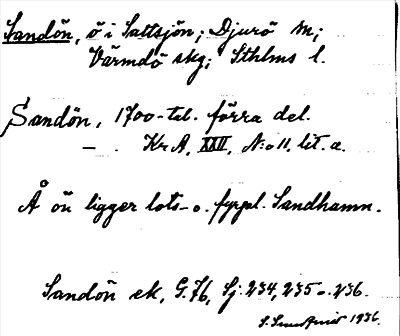 Sandön, ö i Saltsjön; Djurö sn;
Värmdö skg; Sthlms l.
Sandön, 1700-tal. förra del.
— . Kr A, XXII, N:o 11, lit. a.
Å ön ligger lots- o. fyrpl. Sandhamn.
Sandön ek, G. 76, Sj: 234, 235 o. 236.
1936.